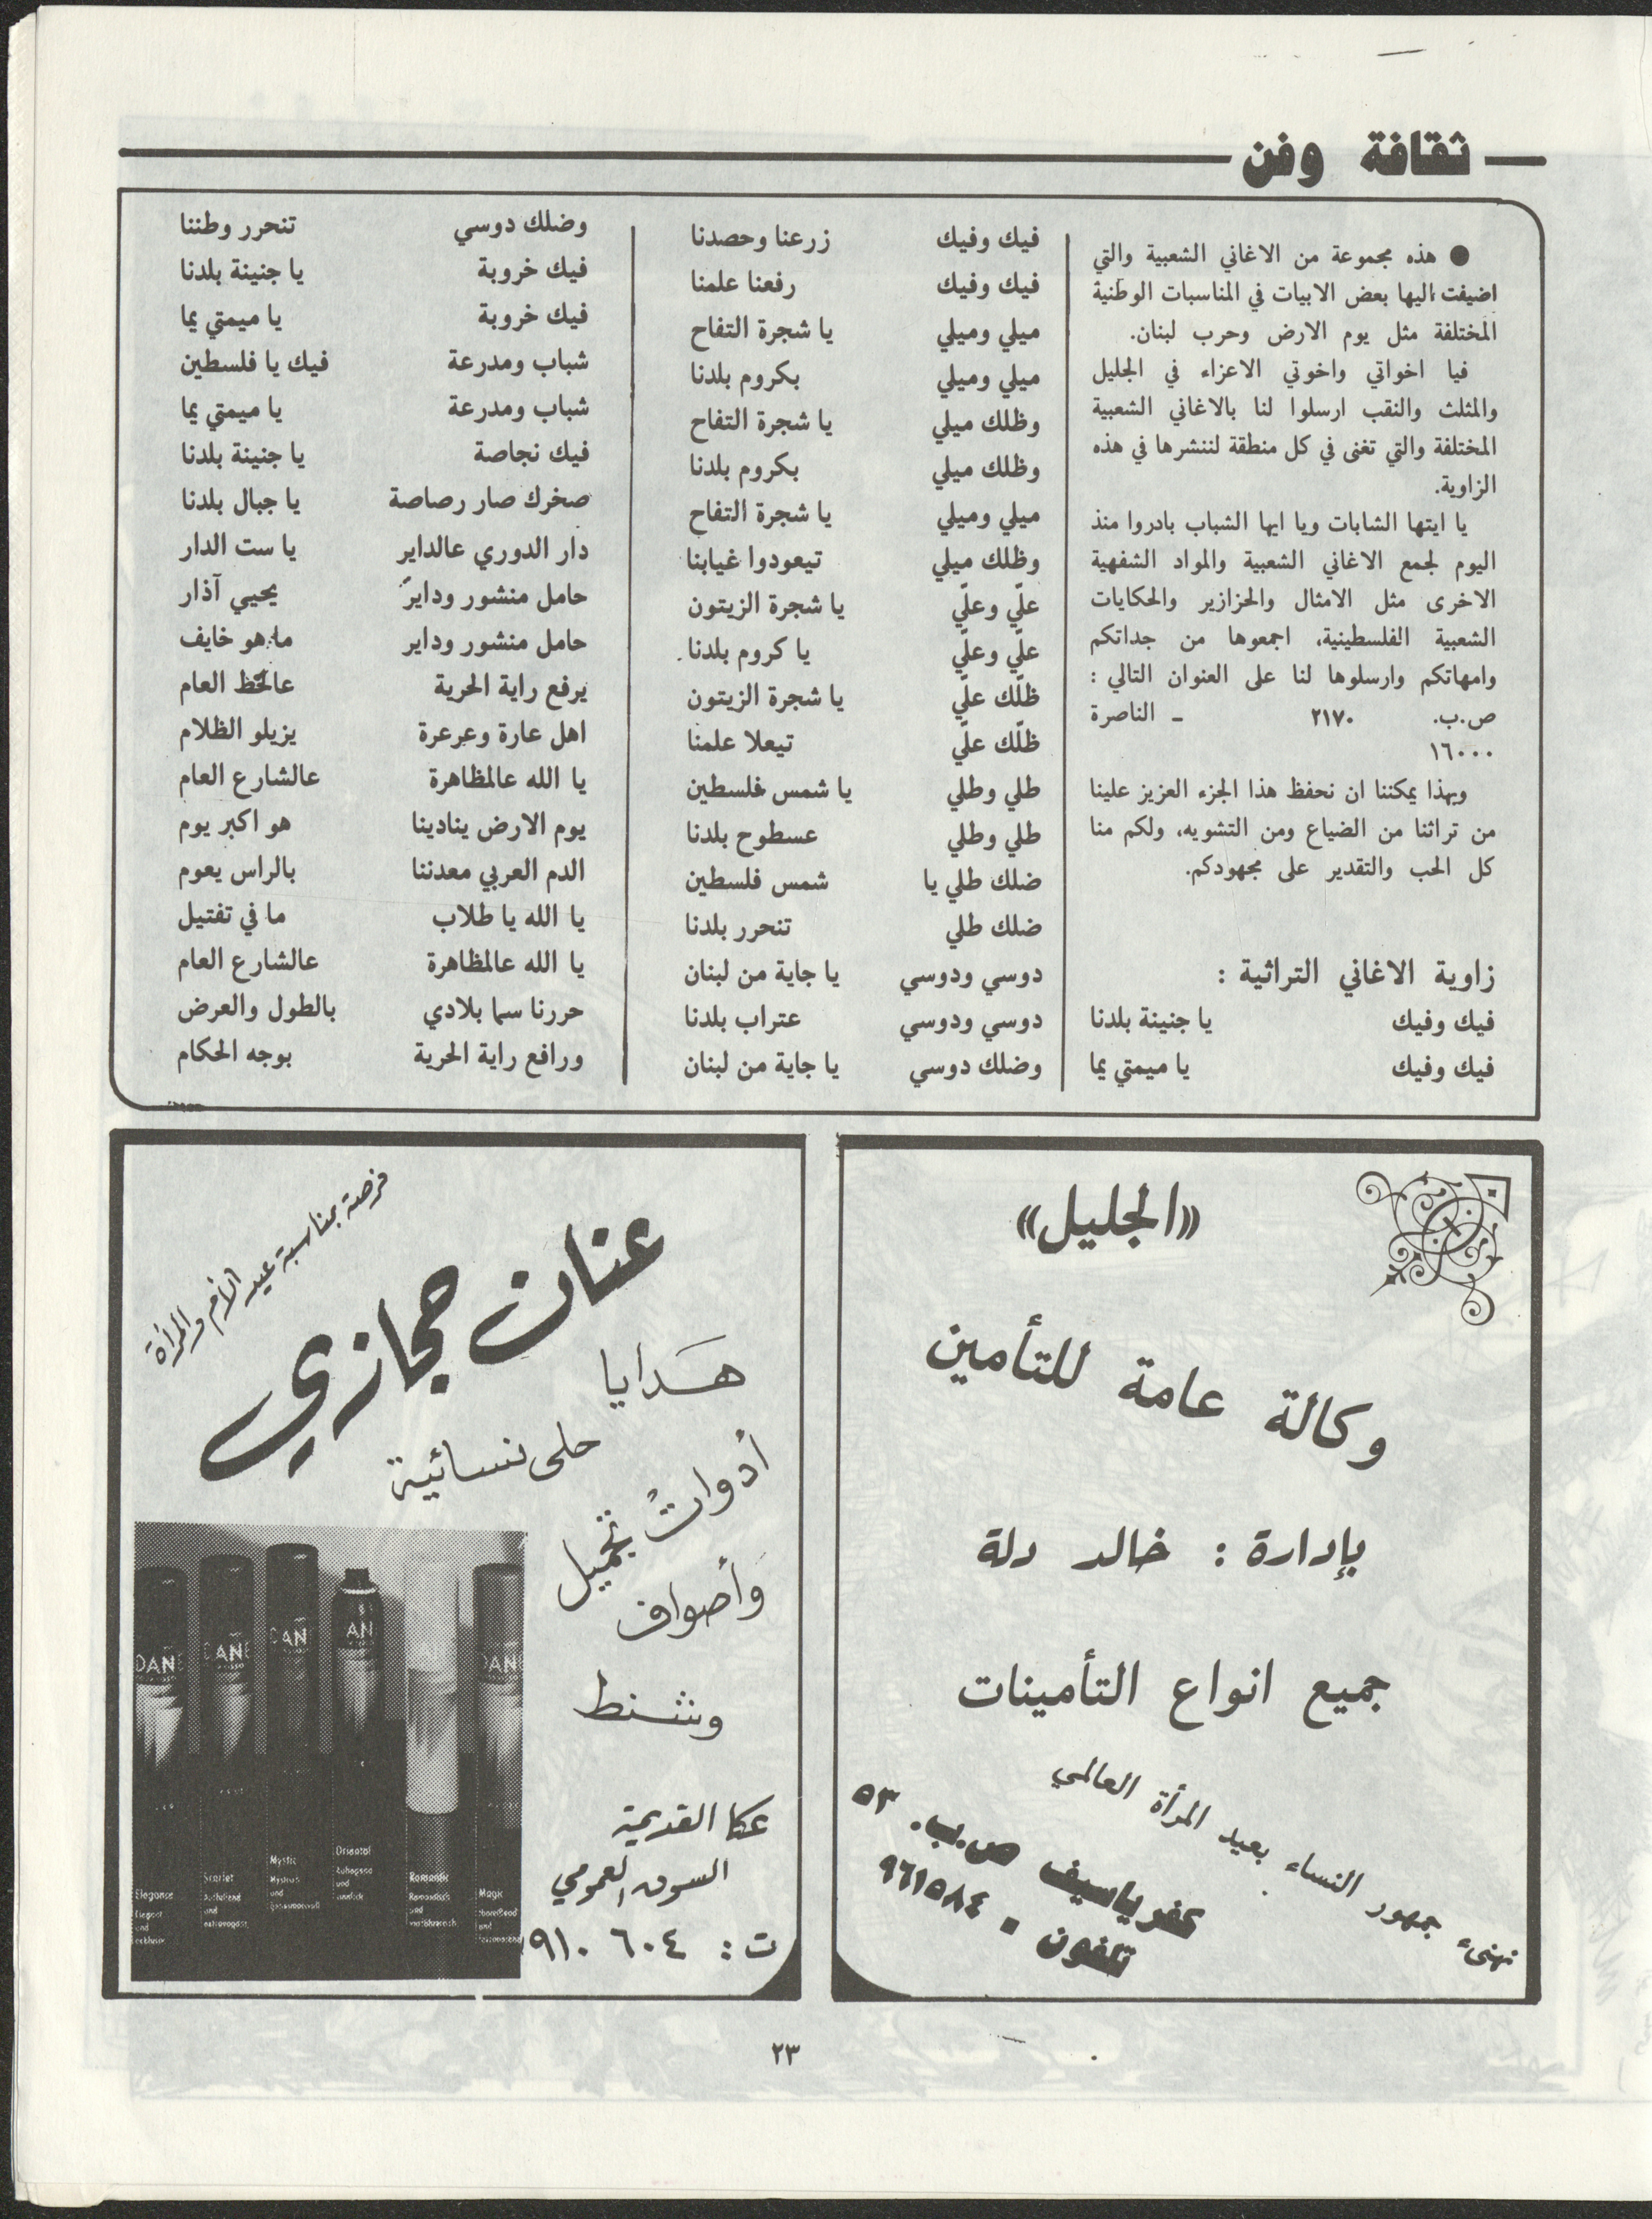 ثقافة وفن
● هذه مجموعة من الاغاني الشعبية والتي
اضيفت اليها بعض الابيات في المناسبات الوطنية
المختلفة مثل يوم الارض وحرب لبنان.
فيا اخواتي واخوتي الاعزاء في الجليل
والمثلث والنقب ارسلوا لنا بالاغاني الشعبية
المختلفة والتي تغنى في كل منطقة لننشرها في هذه
الزاوية.
يا ايتها الشابات ويا ايها الشباب بادروا منذ
اليوم لجمع الاغاني الشعبية والمواد الشفهية
الاخرى مثل الامثال والحزازير والحكايات
الشعبية الفلسطينية، اجمعوها من جداتكم
وامهاتكم وارسلوها لنا على العنوان التالي :
ص.ب. ٢١٧٠ - الناصرة
١٦٠٠٠
وبهذا يمكننا ان نحفظ هذا الجزء العزيز علينا
من تراثنا من الضياع ومن التشويه، ولكم منا
كل الحب والتقدير على مجهودكم.
زاوية الاغاني التراثية :
فيك وفيك يا جنينة بلدنا
فيك وفيك يا ميمتي يما
فيك وفيك زرعنا وحصدنا
فيك وفيك رفعنا علمنا
ميلي وميلي يا شجرة التفاح
ميلي وميلي بكروم بلدنا
وظلك ميلي يا شجرة التفاح
وظلك ميلي بكروم بلدنا
ميلي وميلي يا شجرة التفاح
وظلك ميلي تيعودوا غيابنا
علّي وعلّي يا شجرة الزيتون
علّي وعلّي يا كروم بلدنا.
ظلّك علّي يا شجرة الزيتون
ظلّك علّي تيعلا علمنا
طلي وطلي يا شمس فلسطين
طلي وطلي عسطوح بلدنا
ضلك طلي يا شمس فلسطين
ضلك طلي تنحرر بلدنا
دوسي ودوسي يا جاية من لبنان
دوسي ودوسي عتراب بلدنا
وضلك دوسي يا جاية من لبنان
وضلك دوسي تنحرر وطننا
فيك خروبة يا جنينة بلدنا
فيك خروبة يا ميمتي يما
شباب ومدرعة فيك يا فلسطين
شباب ومدرعة يا ميمتي يما
فيك نجاصة يا جنينة بلدنا
صخرك صار رصاصة يا جبال بلدنا
دار الدوري عالداير يا ست الدار
حامل منشور وداير يحيي آذار
حامل منشور وداير ما هو خايف
يرفع راية الحرية عالخط العام
اهل عارة وعرعرة يزيلو الظلام
يا الله عالمظاهرة عالشارع العام
يوم الارض ينادينا هو اكبر يوم
الدم العربي معدننا بالراس يعوم
يا الله يا طلاب ما في تفتيل
يا الله عالمظاهرة عالشارع العام
حررنا سما بلادي بالطول والعرض
ورافع راية الحرية بوجه الحكام
«الجليل»
وكالة عامة للتأمين
بإدارة : خالد دلة
جميع انواع التأمينات
نهنىء جمهور النساء بعيد المرأة العالمي
كفر ياسيف ص.ب. ٥٣
تلفون ٩٦١٥٨٤
فرصة بمناسبة عيد الأم والمرأة
عنان حجازي
هدايا
حلى نسائية
أدوات تجميل
وأصواف
وشنط
عكا القديمة
السوق العمومي
ت : ٩١٠٦٠٤
Elegance
Scarlet
Mystic
Oriental
Romantic
Magic
٢٣